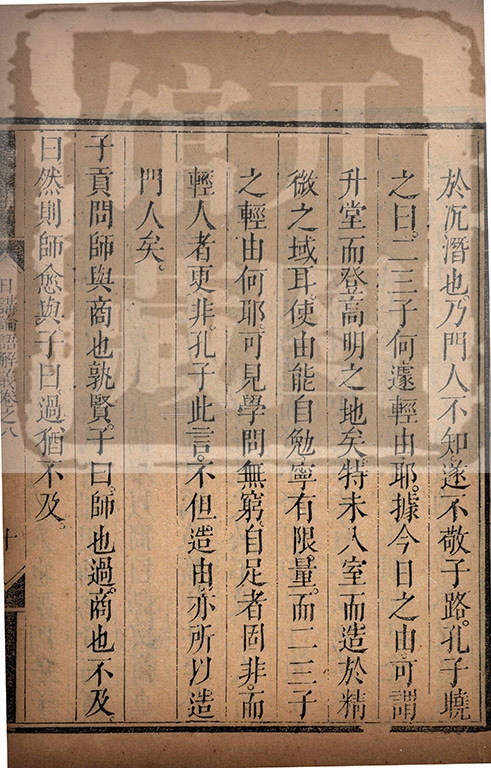 於沉潛也。乃門人不知。遂不敬子路。孔子曉
之曰。二三子何遽輕由耶。據今日之由。可謂
升堂而登高明之地矣。特未入室而造於精
微之域耳。使由能自勉。寧有限量。而二三子
之輕由何耶。可見學問無窮。自足者固非。而
輕人者更非。孔子此言。不但造由。亦所以造
門人矣。
子貢問師與商也孰賢。子曰。師也過。商也不及。
曰然則師愈與。子曰過猶不及。
日講論語解義卷之八
十